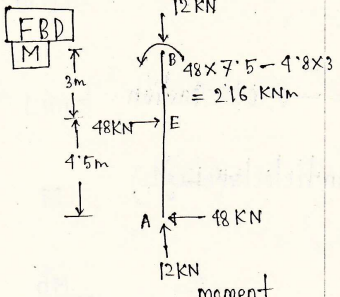 12KN
FBD
M
B 48×7.5 - 4.8×3
= 216 KNm
3m
48KN E
4.5m
A 48 KN
12KN
moment